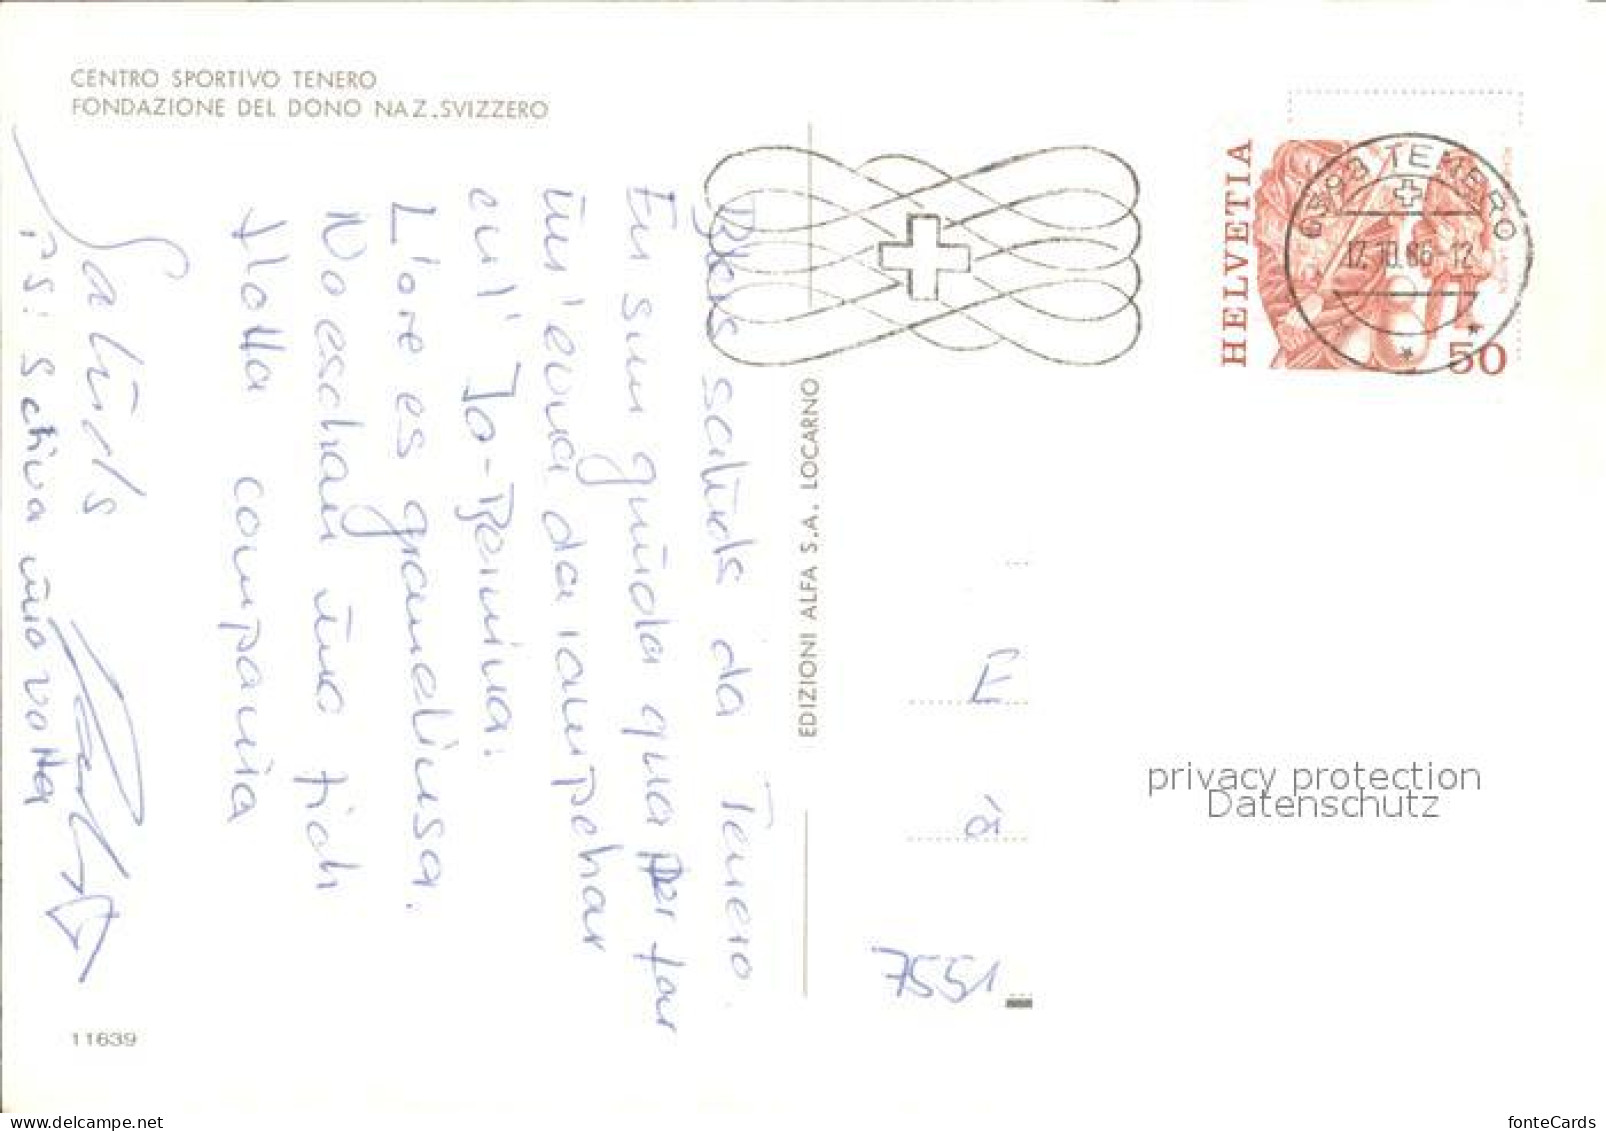 CENTRO SPORTIVO TENERO
FONDAZIONE DEL DONO NAZ.SVIZZERO
HELVETIA
6598 TENERO
17.10.86-12
50
EDIZIONI ALFA S.A. LOCARNO
salüds da Tenero.
Eu sun quida qua per far
ün'eivna da
cul' Jo-Bernina.
L'ore es grandiusa.
No eschan üna fich
flotta compania
Salüds
PS: Scriva üna votta
E
à
7551
privacy protection
Datenschutz
11639
www.delcampe.net
fonteCards